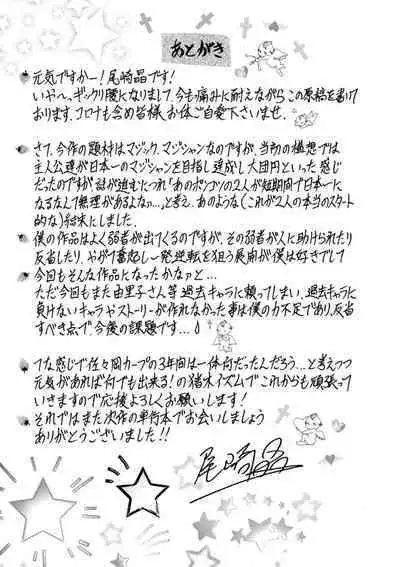 あとがき
元気ですかー!尾崎晶です!
いや〜、ギックリ腰になりまして、今も痛みに耐えながらこの原稿を書いて
おります。コロナも含め皆様、お体ご自愛下さいませ。
さて、今作の題材はマジック、マジシャンなのですが、当初の構想では
主人公達が日本一のマジシャンを目指し達成し大団円といった感じ
だったのですが、話が進むにつれ「あのポンコツの2人が短期間で日本一に
なるなんて無理があるよなァ…」と考え、あのような(これが2人の本当のスタート
的な)結末にしました。
僕の作品はよく弱者が出てくるのですが、その弱者が人に助けられたり
反省したり、やがて奮起し一発逆転を狙う展開が僕は好きでして
今回もそんな作品になったかなァと…
ただ今回もまた由里子さん等過去キャラに頼ってしまい、過去キャラに
負けないキャラやストーリーが作れなかった事は僕の力不足であり反省
すべき点で、今後の課題です…。
てな感じで佐々岡カープの3年間は一体何だったんだろう…と考えつつ
元気があれば何でも出来る!の猪木イズムでこれからも頑張って
いきますので応援よろしくお願いします!
それではまた次作の単行本でお会いしましょう
ありがとうございました!!
尾崎晶